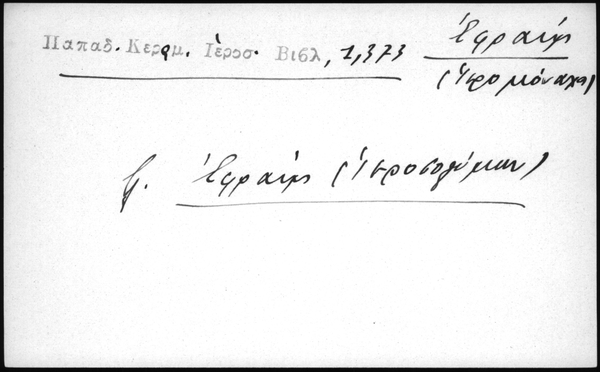 Παπαδ. Κεραμ. Ιεροσ. Βιβλ, 1,373
Ἐφραίμ
(Ἱερομόναχος)
β. Ἐφραίμ (Ἱεροσολύμων)